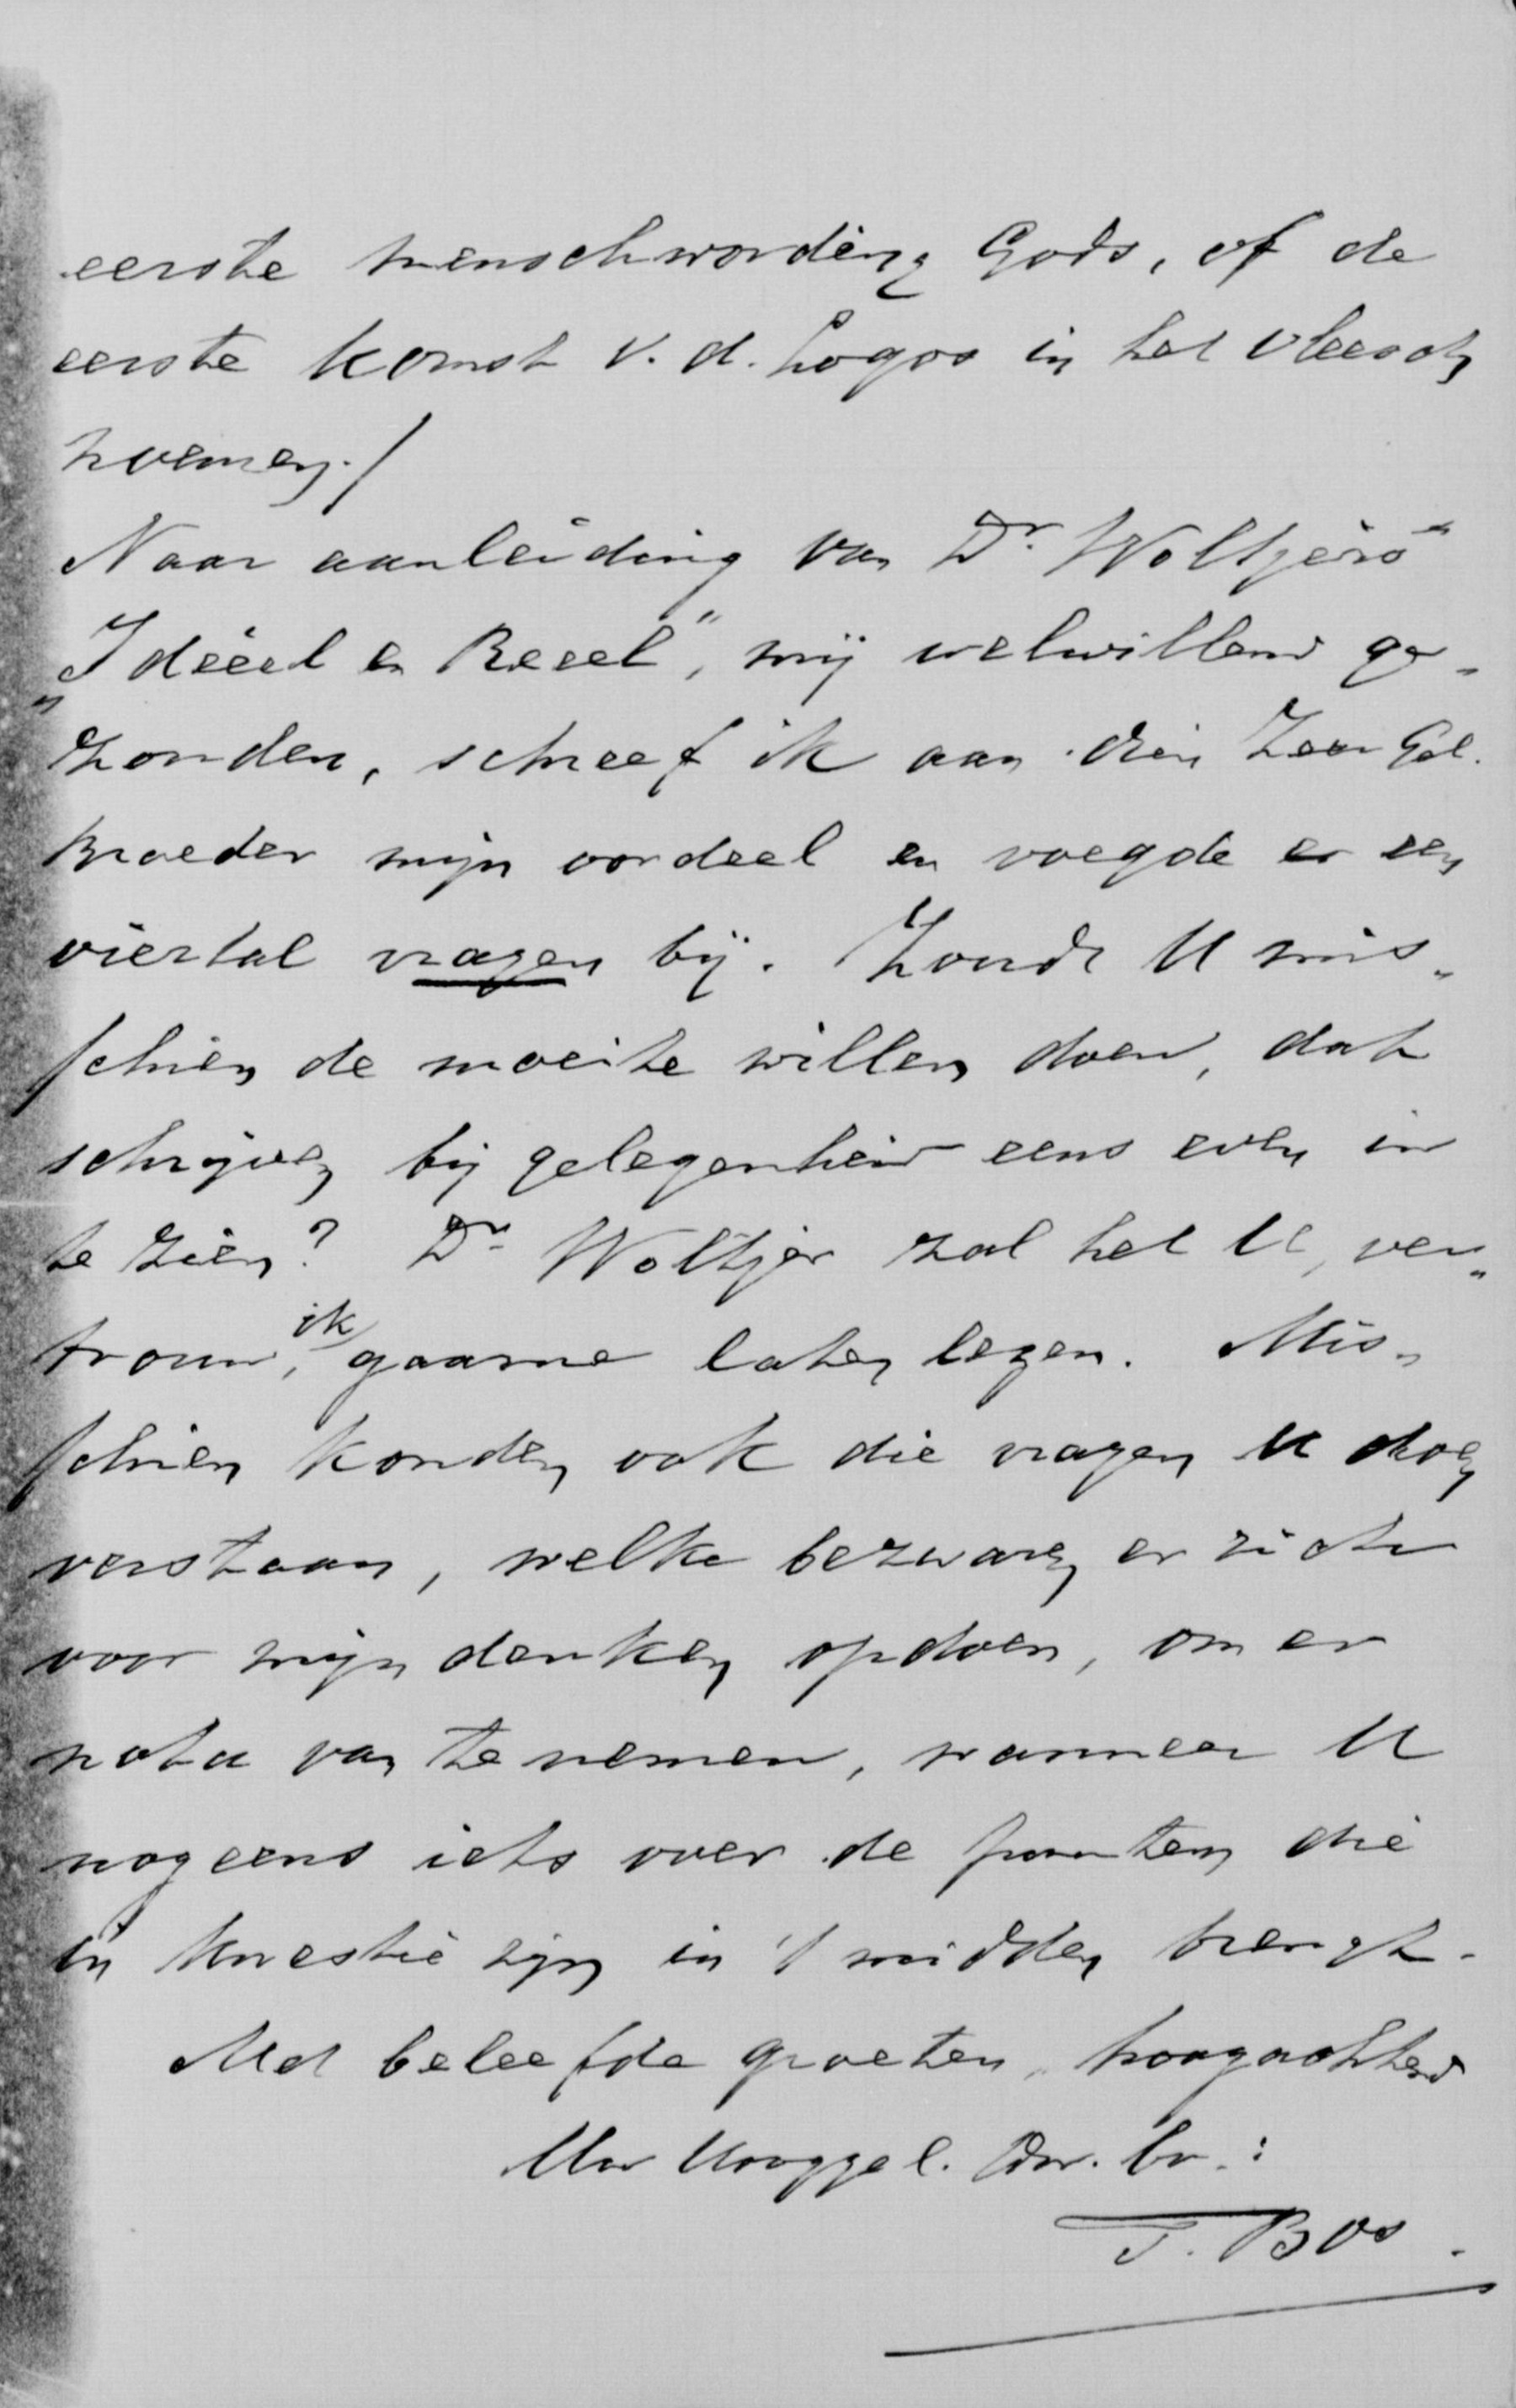 eerste menschwording Gods, of de
eerste komst v. d. Logos in het vleesch
noemen./
Naar aanleiding van Dr. Woltjers
„Ideëel en Reeel", mij welwillend ge-
zonden, schreef ik aan dien Zeer Gel.
Broeder mijn oordeel en voegde er een
viertal vragen bij. Zoudt U mis-
schien de moeite willen doen, dat
schrijven bij gelegenheid eens even in
te zien? Dr. Woltjer zal het U, ver-
trouw ik, gaarne laten lezen. Mis-
schien konden ook die vragen U doen
verstaan, welke bezwaren er zich
voor mijn denken opdoen, om er
nota van te nemen, wanneer U
nog eens iets over de punten die
in kwestie zijn in 't midden brengt.
Met beleefde groeten, hoogachtend
Uw Hooggel. Dw. br.:
T. Bos.